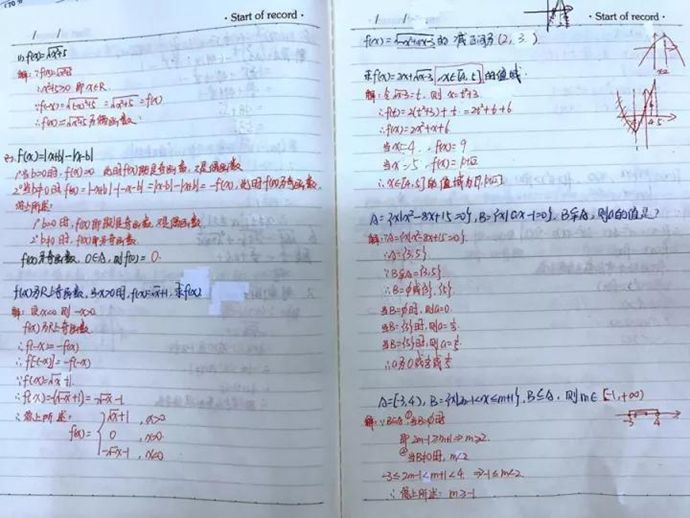 · Start of record ·
(1) f(x)=√x²+5
解: ∵f(x)=√x²+5
∴x²+5>0 即 x∈R.
∵f(-x)=√(-x)²+5 =√x²+5 =f(x)
∴f(x)=√x²+5为偶函数.
f(x)=|x+b|-|x-b|
1°当b=0时, f(x)=0 此时f(x)既是奇函数,又是偶函数
2°当b≠0时 f(-x)=|-x+b|-|-x-b|=|x-b|-|x+b|=-f(x), 此时f(x)为奇函数.
综上所述:
1°b=0时, f(x)即既是奇函数,又是偶函数.
2°b≠0时, f(x)即为奇函数.
f(x)为奇函数, 0∈A, 则f(0)=0.
f(x)为R上奇函数, 当x>0时, f(x)=√x+1, 求f(x)
解: 设x<0 则 -x>0
f(x)为R上奇函数
∴f(-x)=-f(x)
∵f(x)=√x+1.
∴f(-x)=-(√-x+1)=-√-x-1
∴综上所述:
f(x)={ √x+1, x>0
0 , x=0
-√-x-1 , x<0
· Start of record ·
f(x)=√-x²+4x-3的减区间(2, 3)
x=2
求f(x)=2x+√x-3, x∈[4,5]的值域.
解: 令√x-3=t, 则 x=t²+3.
∴f(t)=2(t²+3)+t=2t²+t+6
∴f(x)=2x²+x+6
当x=4, f(x)=9
当x=5, f(x)=
4 5
A={x|x²-8x+15=0}, B={x|ax-1=0}, B⊊A, 则a的值是?
解: ∵A={x|x²-8x+15=0}
∴A={3,5}
∵B⊊A={3,5}
∴B=∅或{3}, {5}
当B=∅时, 则a=0.
当B={3}时, 则a=⅓.
当B={5}时, 则a=⅕
∴a为0或⅓或⅕
A=[-3,4), B={x|2m-1<x≤m+1}, B⊆A, 则m∈[-1,+∞)
-3 4
解: ∵B⊆A ①当B=∅时
即 2m-1≥m+1 ⇒ m≥2.
②当B≠∅时, m<2
-3≤2m-1<m+1<4 ⇒ -1≤m<2.
∴综上所述: m≥-1